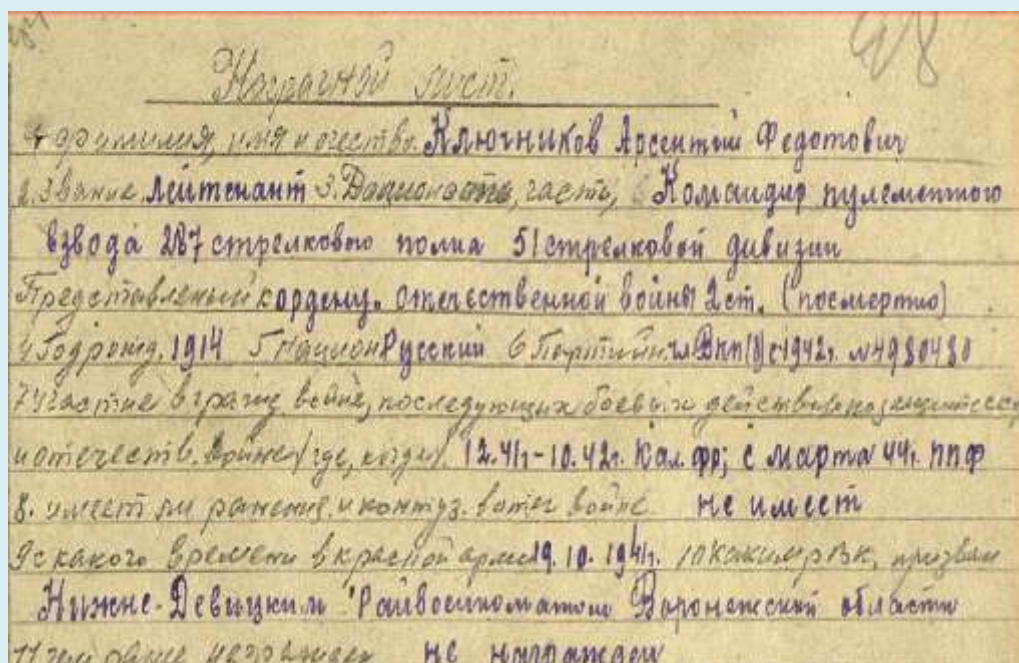 418
Наградной лист.
1 фамилия, имя и отчество. Ключников Арсентий Федотович
2. Звание. лейтенант 3. Должность, часть, Командир пулеметного
взвода 287 стрелкового полка 51 стрелковой дивизии
Представленый к ордену. отечественной войны 2 ст. (посмертно)
4 Год рожд. 1914 5 Национ Русский 6 Партийн. чл ВКП(б) с 1942г. №4980480
7 Участие в гражд. войне, последующих боевых действиях по защите ссс
и отечеств. войне (где, когда). 12.41г-10.42г. Кал. фр; с марта 44г. ППФ
8. имеет ли ранения и контуз. в отеч войне не имеет
9 с какого времени в красной арми 19.10.1941г. 10 каким рвк, призван
Нижне-Девицким Райвоенкоматом Воронежской области
11 чем ранее награжден не награжден